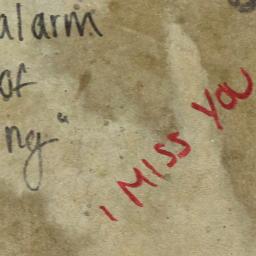 alarm
of
ng"
I MISS YOU